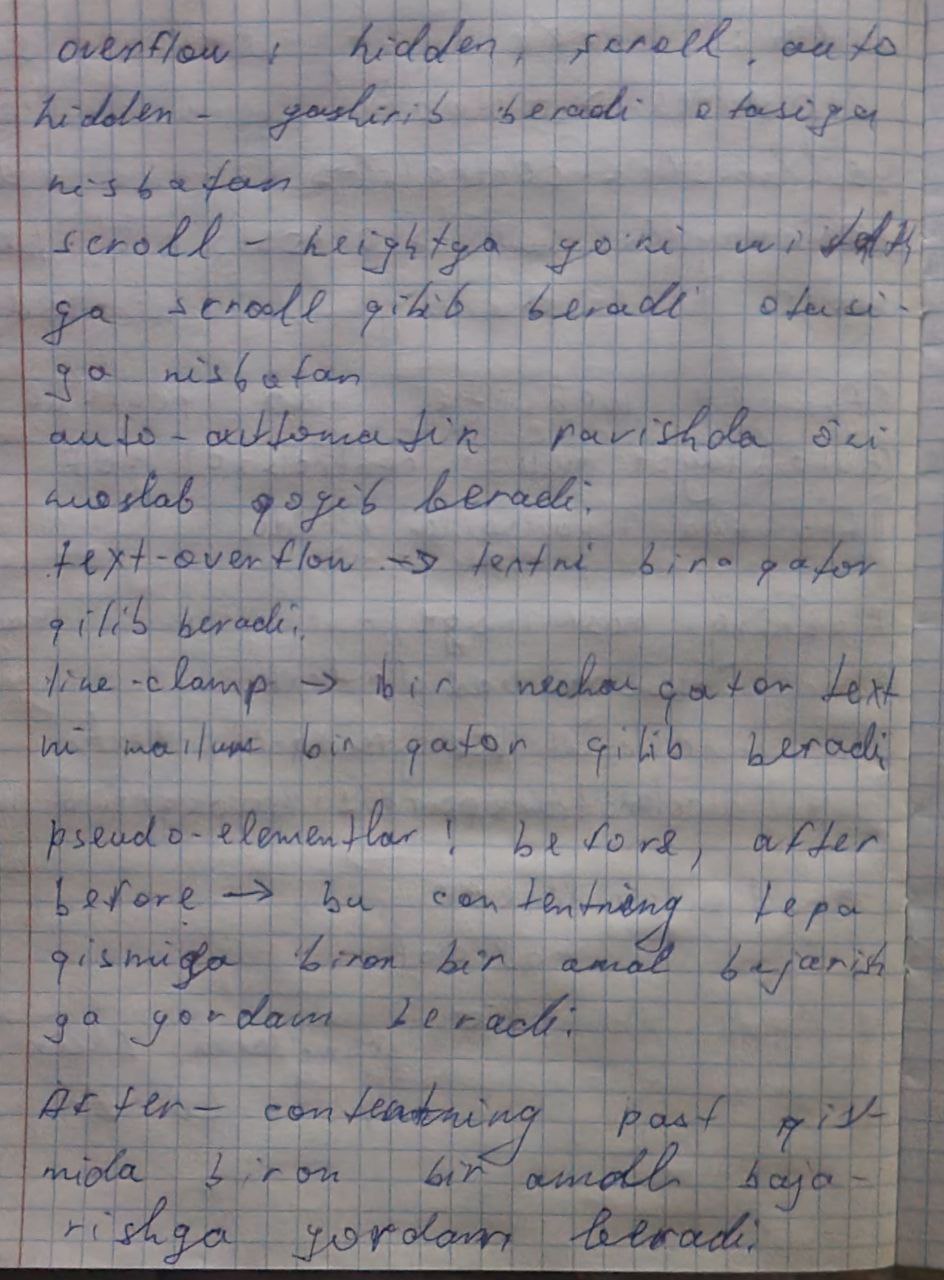 overflow : hidden, scroll, auto
hidden - yashirib beradi otasiga
nisbatan
scroll - heightga yo'ni width
ga scrooll qilib beradi otasi-
ga nisbatan
auto - avtomatik ravishda o'zi
moslab qoyib beradi.
text-overflow -> textni bira qator
qilib beradi.
line-clamp -> bir nechta qator text
ni mailum bir qator qilib beradi
pseudo-elementlar! before, after
before -> bu contentning tepa
qismiga biron bir amal bajarish
ga yordam beradi.
After - contentning past qis-
mida biron bir amall baja-
rishga yordam beradi.